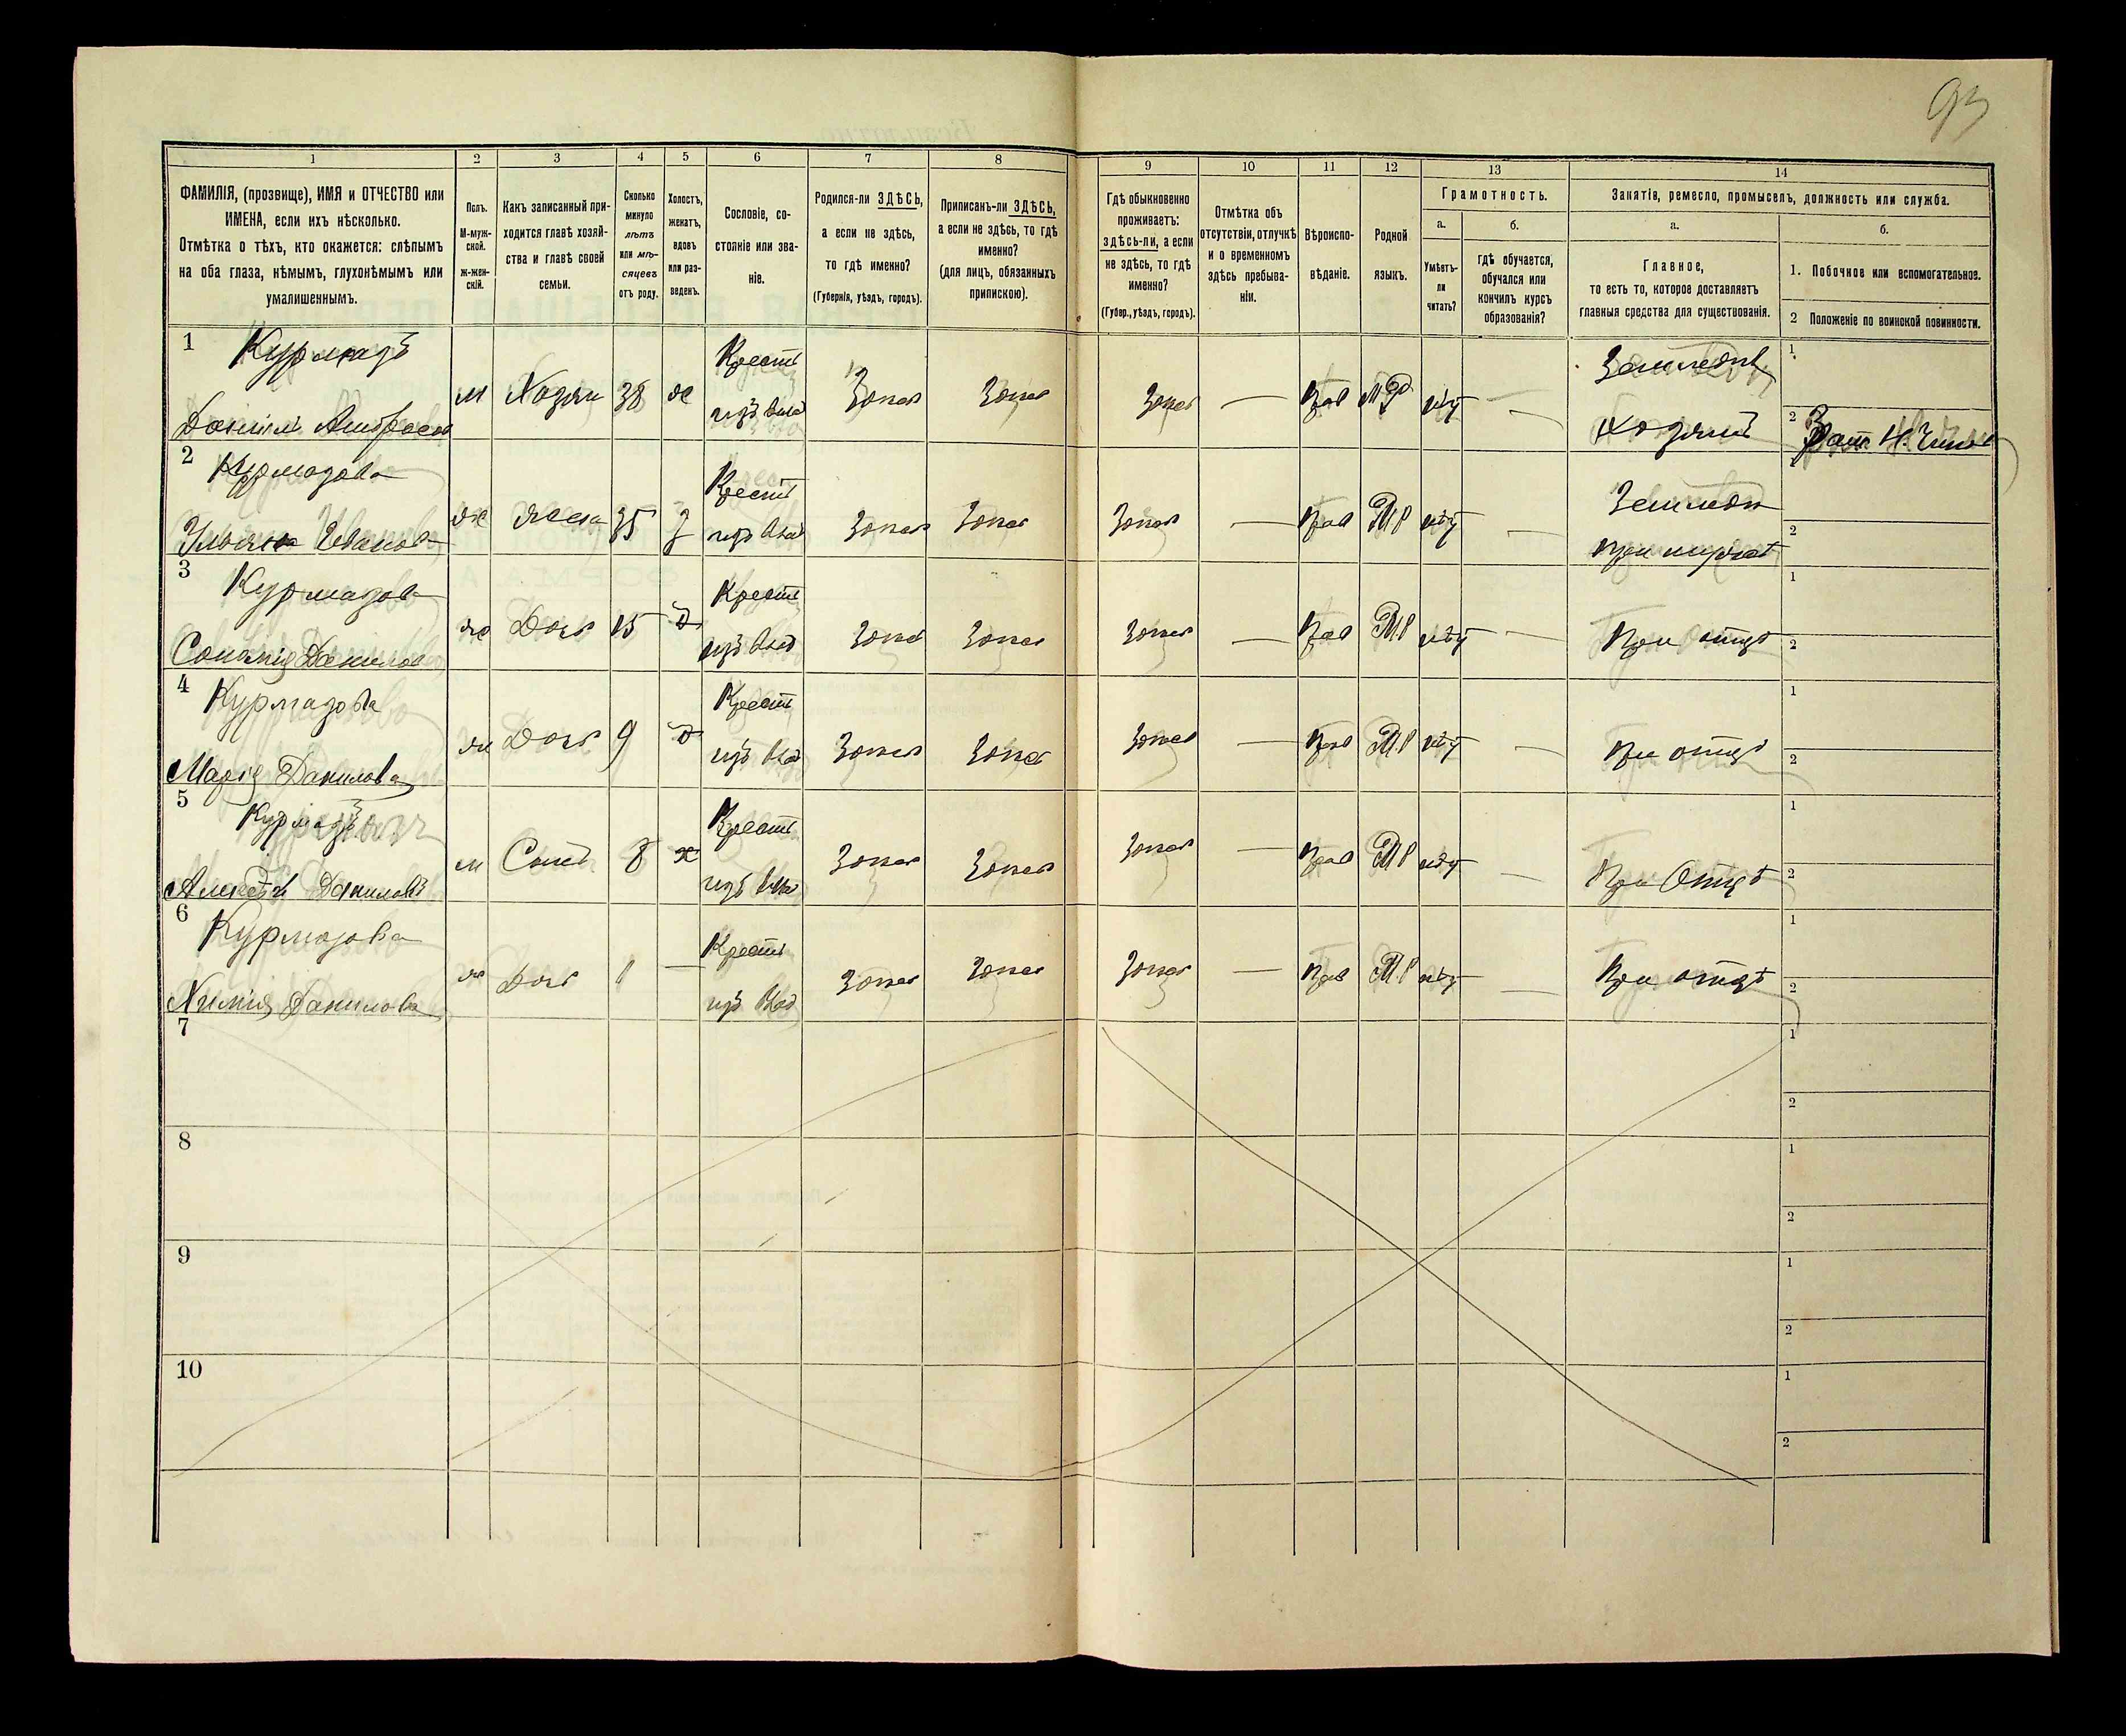 93
1 2 3 4 5 6 7 8 9 10 11 12 13 14
ФАМИЛІЯ, (прозвище), ИМЯ и ОТЧЕСТВО или
ИМЕНА, если ихъ нѣсколько.
Отмѣтка о тѣхъ, кто окажется: слѣпымъ
на оба глаза, нѣмымъ, глухонѣмымъ или
умалишеннымъ.
Полъ.
М-муж-
ской.
ж-жен-
скій.
Какъ записанный при-
ходится главѣ хозяй-
ства и главѣ своей
семьи.
Сколько
минуло
лѣтъ
или мѣ-
сяцевъ
отъ роду.
Холостъ,
женатъ,
вдовъ
или раз-
веденъ.
Сословіе, со-
стояніе или зва-
ніе.
Родился-ли ЗДѢСЬ,
а если не здѣсь,
то гдѣ именно?
(Губернія, уѣздъ, городъ).
Приписанъ-ли ЗДѢСЬ,
а если не здѣсь, то гдѣ
именно?
(для лицъ, обязанныхъ
припискою).
Гдѣ обыкновенно
проживаетъ:
здѣсь-ли, а если
не здѣсь, то гдѣ
именно?
(Губер., уѣздъ, городъ).
Отмѣтка объ
отсутствіи, отлучкѣ
и о временномъ
здѣсь пребыва-
ніи.
Вѣроиспо-
вѣданіе.
Родной
языкъ.
Грамотность.
а.
Умѣетъ-
ли
читать?
б.
гдѣ обучается,
обучался или
кончилъ курсъ
образованія?
Занятія, ремесло, промыселъ, должность или служба.
а.
Главное,
то есть то, которое доставляетъ
главныя средства для существованія.
б.
1. Побочное или вспомогательное.
2 Положеніе по воинской повинности.
1 Курмазъ
Крест Земледѣл 1
м Хозяи 38 ж Здѣсь Здѣсь Здѣсь — Прав М Р нѣт —
Даніил изъ Влад Хозяинъ 2
2 Курмазова
Крест Земледѣл
ж жена 35 З Здѣсь Здѣсь Здѣсь — Прав М Р нѣт —
Ульяна Иванова изъ Влад при мужѣ 2
3 Курмазова
Крест 1
ж Дочь 15 Д Здѣсь Здѣсь Здѣсь — Прав М.Р нѣт — При отцѣ 2
Данилов изъ Влад
4 Курмазова
Крест 1
ж Дочь 9 Д Здѣсь Здѣсь Здѣсь — Прав М.Р нѣт — При отцѣ 2
Марія Данилова изъ Влад
5 Курмазъ
Крест 1
м Сынъ 8 х Здѣсь Здѣсь Здѣсь — Прав М Р нѣт — При Отцѣ 2
Данилов изъ Влад
6 Курмазова
Крест 1
ж Дочь 1 — Здѣсь Здѣсь Здѣсь — Прав М.Р нѣт — При отцѣ 2
Данилова изъ Влад
7 1
2
8 1
2
9 1
2
10 1
2